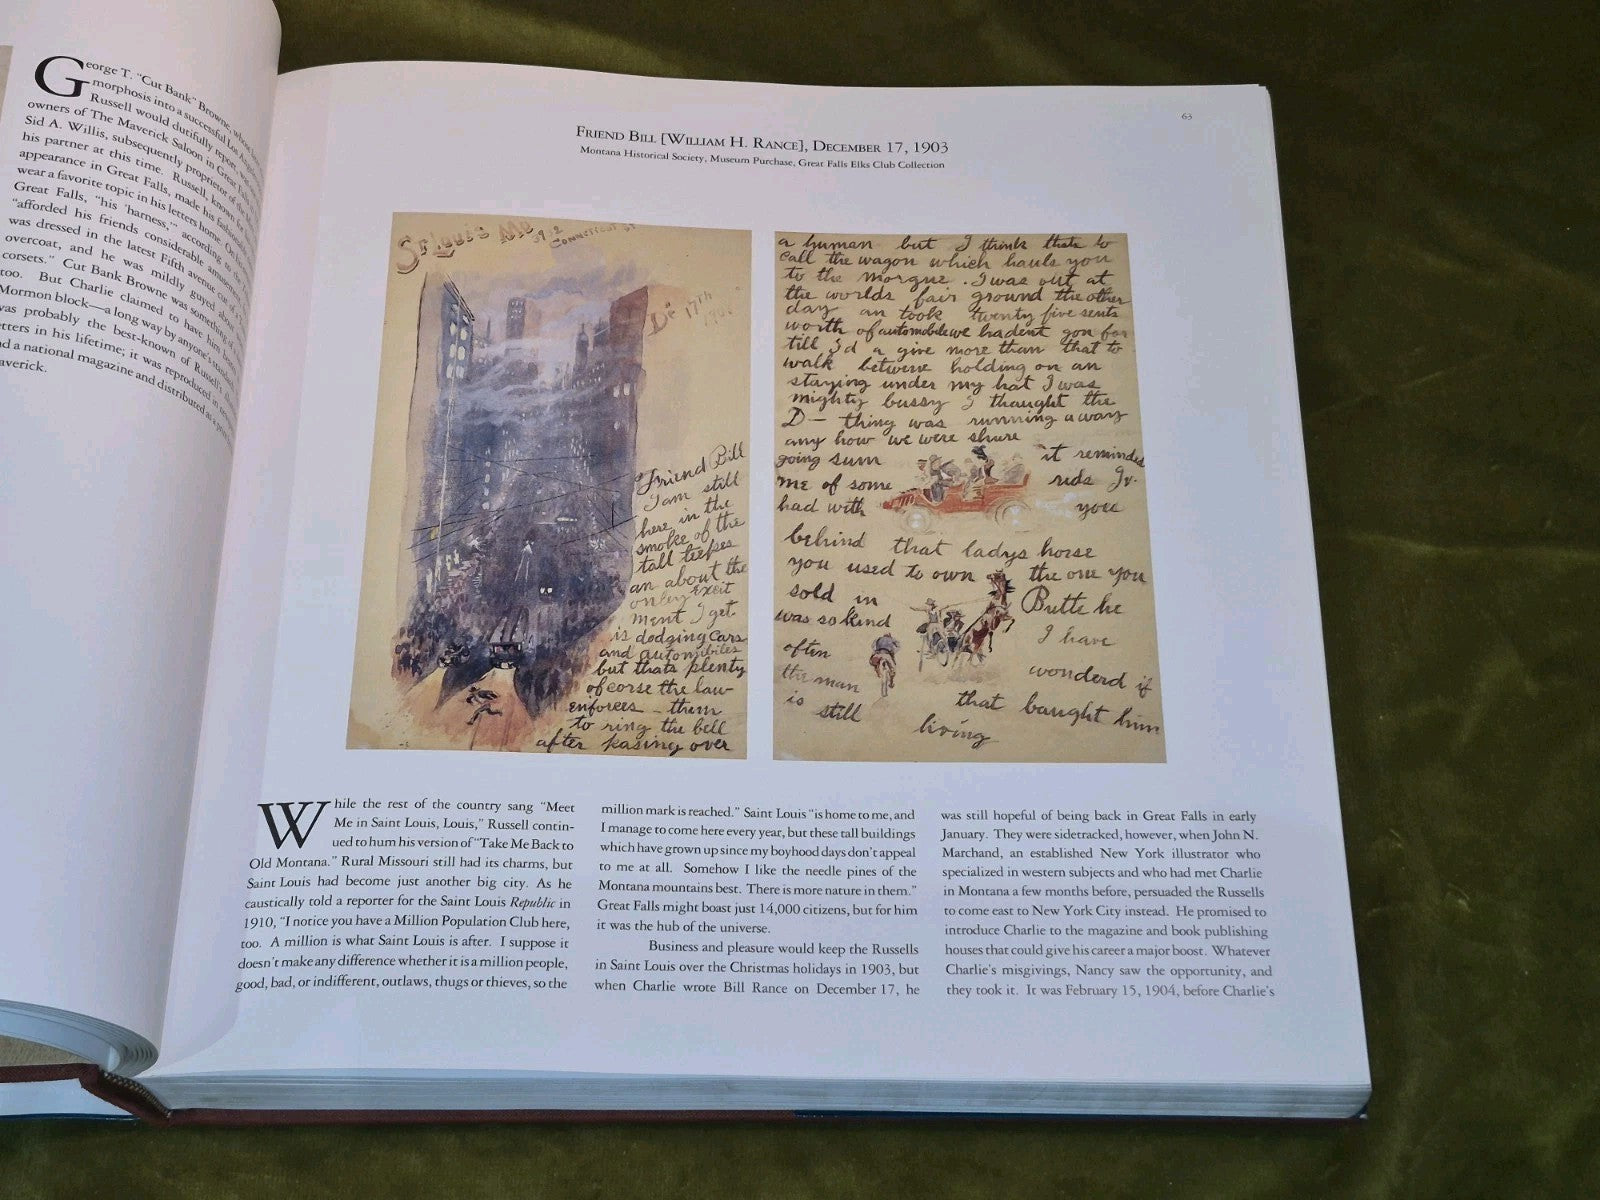 George T. "Cut Bank" Browne, whose
morphosis into a successful Los
Russell would dutifully report, was
owners of The Maverick Saloon in Great Falls
Sid A. Willis, subsequently proprietor of the
his partner at this time. Russell, known for
appearance in Great Falls, made his fashionable
wear a favorite topic in his letters home. On
Great Falls, "his 'harness,'" according to the
"afforded his friends considerable amusement
was dressed in the latest Fifth avenue cut of a
overcoat, and he was mildly guyed about
corsets." Cut Bank Browne was something of
too. But Charlie claimed to have him
Mormon block—a long way by anyone's standards
was probably the best-known of Russell's
letters in his lifetime; it was reproduced in
and a national magazine and distributed as a
Maverick.
63
FRIEND BILL [WILLIAM H. RANCE], DECEMBER 17, 1903
Montana Historical Society, Museum Purchase, Great Falls Elks Club Collection
St Louis Mo
3912
Connecticut St
De 17th
Friend Bill
I am still
here in the
smoke of the
tall teepes
an about the
onley exeit
ment I get
is dodging cars
and automobiles
but thats plenty
of corse the law
enforces them
to ring the bell
after pasing over
a human but I think thats to
call the wagon which hauls you
to the morgue. I was out at
the worlds fair ground the other
day an took twenty five sents
worth of automobile we hadent gon far
till I'd a give more than that to
walk betwene holding on an
staying under my hat I was
mighty bussy I thaught the
D— thing was running away
any how we were shure
going sum it reminded
me of some rids Iv
had with you
behind that ladys horse
you used to own the one you
sold in Butte he
was so kind I have
often wonderd if
the man that baught him
is still living
While the rest of the country sang "Meet
Me in Saint Louis, Louis," Russell contin-
ued to hum his version of "Take Me Back to
Old Montana." Rural Missouri still had its charms, but
Saint Louis had become just another big city. As he
caustically told a reporter for the Saint Louis Republic in
1910, "I notice you have a Million Population Club here,
too. A million is what Saint Louis is after. I suppose it
doesn't make any difference whether it is a million people,
good, bad, or indifferent, outlaws, thugs or thieves, so the
million mark is reached." Saint Louis "is home to me, and
I manage to come here every year, but these tall buildings
which have grown up since my boyhood days don't appeal
to me at all. Somehow I like the needle pines of the
Montana mountains best. There is more nature in them."
Great Falls might boast just 14,000 citizens, but for him
it was the hub of the universe.
Business and pleasure would keep the Russells
in Saint Louis over the Christmas holidays in 1903, but
when Charlie wrote Bill Rance on December 17, he
was still hopeful of being back in Great Falls in early
January. They were sidetracked, however, when John N.
Marchand, an established New York illustrator who
specialized in western subjects and who had met Charlie
in Montana a few months before, persuaded the Russells
to come east to New York City instead. He promised to
introduce Charlie to the magazine and book publishing
houses that could give his career a major boost. Whatever
Charlie's misgivings, Nancy saw the opportunity, and
they took it. It was February 15, 1904, before Charlie's